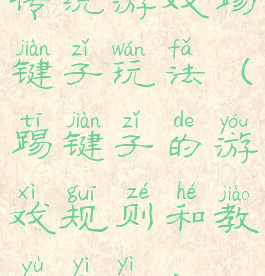 传统游戏踢
jiàn zǐ wán fǎ
键子玩法（
tī jiàn zǐ de yóu
踢键子的游
xì guī zé hé jiào
戏规则和教
yù yì yì